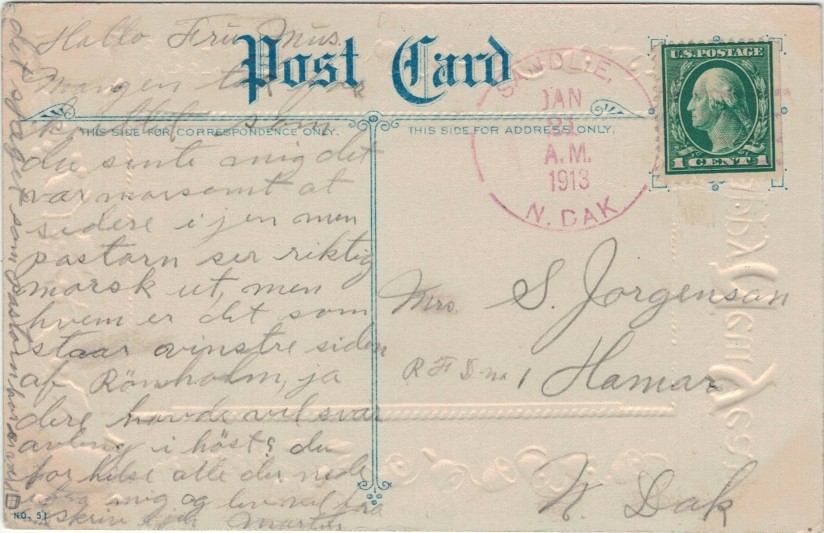 Hallo Fru Mus.
Mangen tak for
som
du sente mig det
var morsomt at
sidere igjen men
pastorn ser riktig
morsk ut, men
hvem er det som
staar vinstre siden
af Rönholm, ja
dere havde vel svar
avling i höst du
for hilse alle der nede
mig og lev vel
skriv Martin
det som
Post Card
THIS SIDE FOR CORRESPONDENCE ONLY.
THIS SIDE FOR ADDRESS ONLY.
JAN
21
A.M.
1913
N. DAK
U.S. POSTAGE
1 CENT 1
Mrs. S. Jorgensan
R F D no 1 Hamar
N. Dak
NO. 51